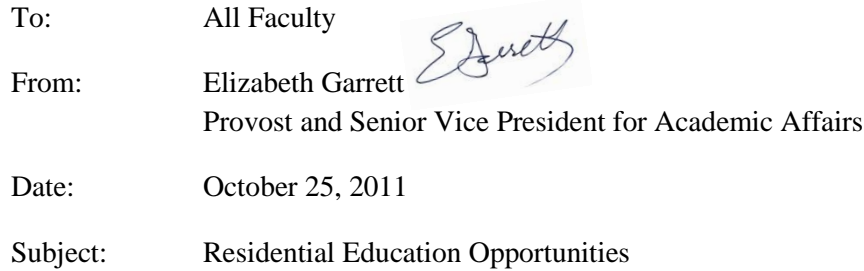 To: All Faculty
From: Elizabeth Garrett EGarrett
Provost and Senior Vice President for Academic Affairs
Date: October 25, 2011
Subject: Residential Education Opportunities